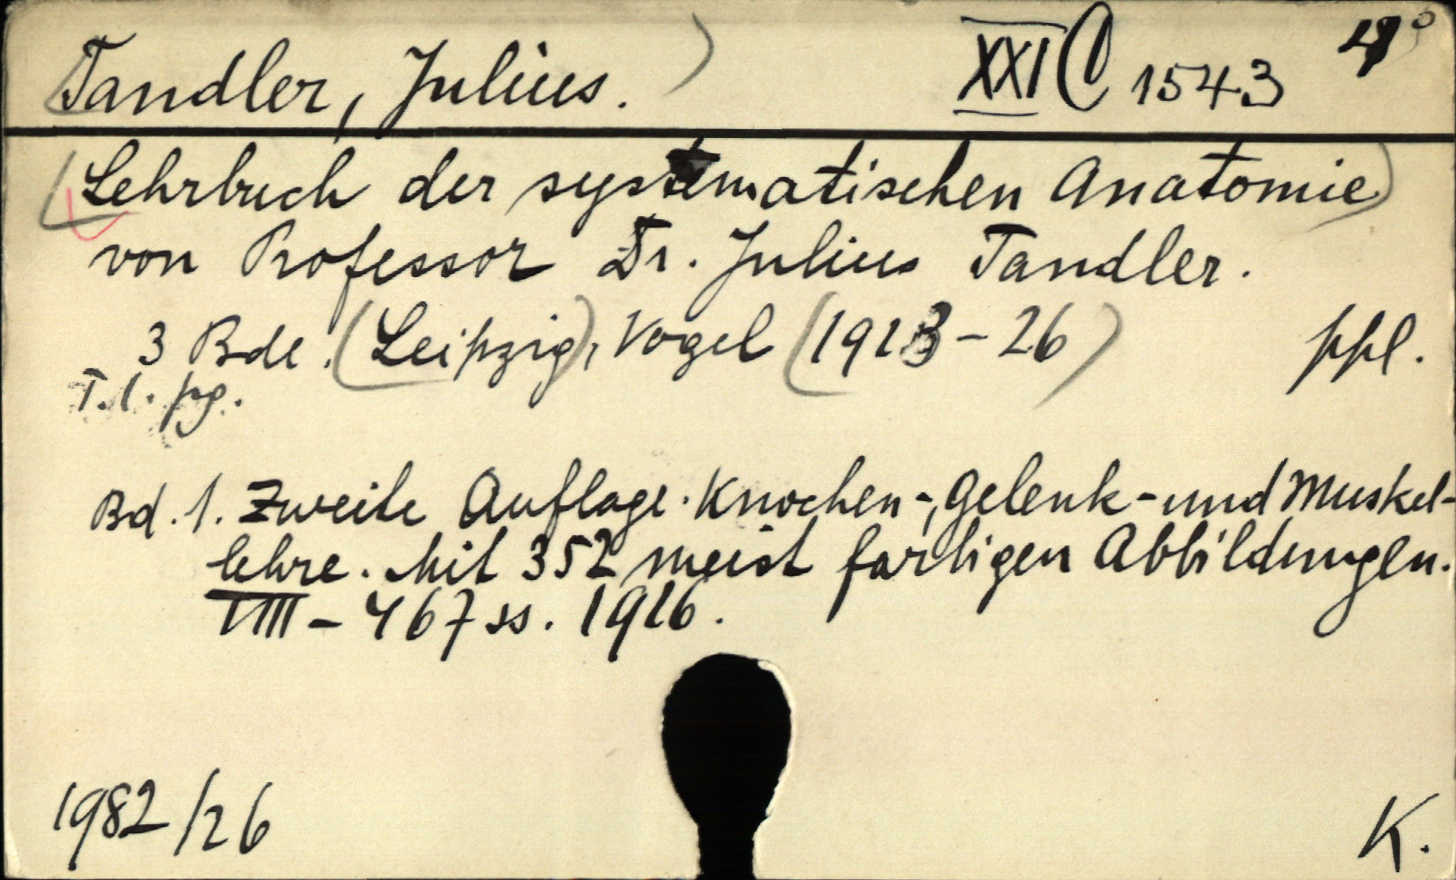 Tandler, Julius. XXI C 1543 4°
Lehrbuch der systematischen Anatomie
von Professor Dr. Julius Tandler.
3 Bde. (Leipzig), Vogel (1923-26) ppl.
T.1. pg.
Bd. 1. Zweite Auflage. Knochen-, Gelenk- und Muskel-
lehre. Mit 352 meist farbigen Abbildungen.
VIII - 467 ss. 1926.
1982/26 K.